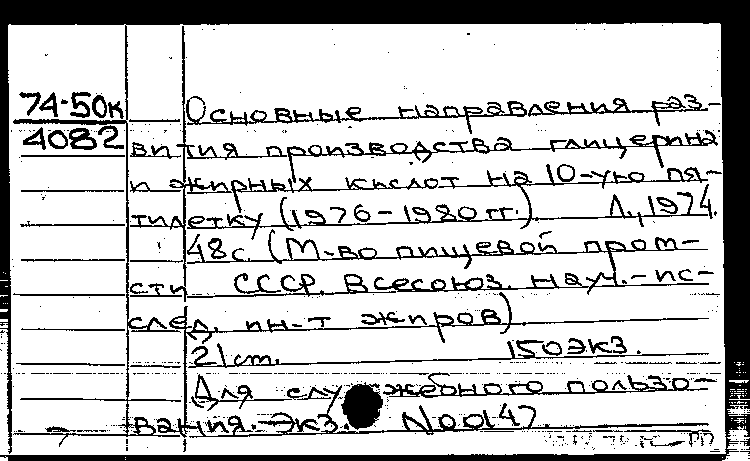 74-50к Основные направления раз-
4082 вития производства глицерина
и жирных кислот на 10-ую пя-
тилетку (1976-1980гг.). Л., 1974.
48с. (М-во пищевой пром-
сти СССР. Всесоюз. науч.-ис-
след. ин-т жиров).
21cm. 150экз.
Для служебного пользо-
вания. Экз. №00147.